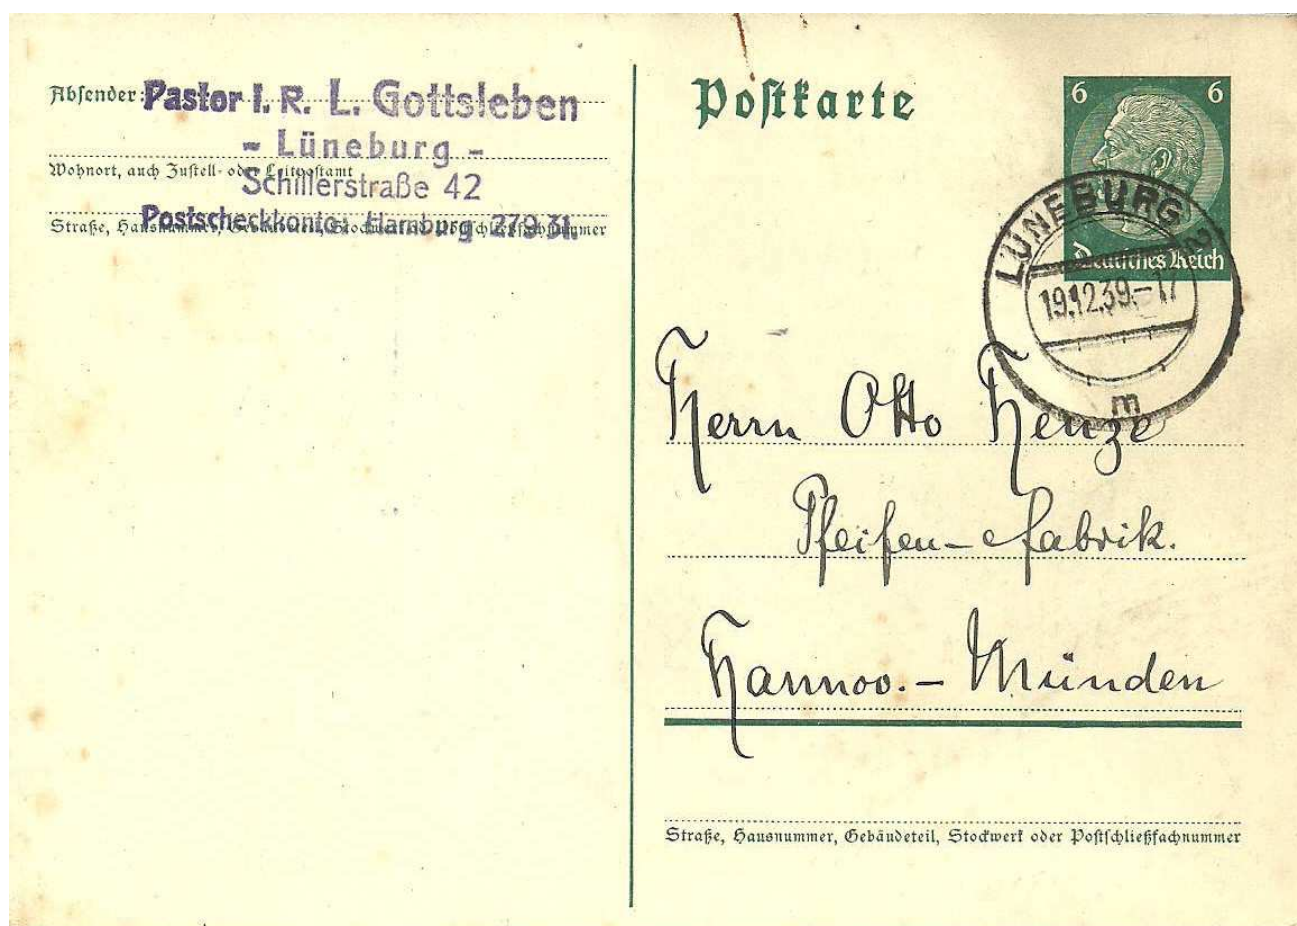 Absender: Pastor i. R. L. Gottsleben
- Lüneburg -
Wohnort, auch Zustell- oder Leitpostamt
Schillerstraße 42
Postscheckkonto: Hamburg 279 31.
Straße, Hausnummer, Gebäudeteil, Stockwerk oder Postschließfachnummer
Postkarte
6 6
Deutsches Reich
LÜNEBURG 2
19.12.39.-17
m
Herrn Otto Henze
Pfeifen-Fabrik.
Hannov.- Münden
Straße, Hausnummer, Gebäudeteil, Stockwerk oder Postschließfachnummer